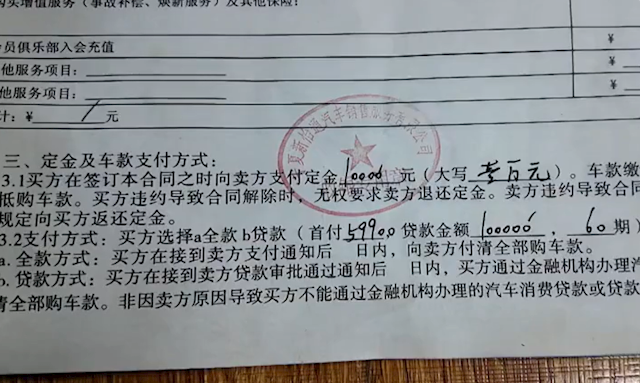 购买增值服务（事故补偿、焕新服务）及其他保险：
员俱乐部入会充值 ¥
他服务项目： ¥
他服务项目： ¥
计：¥ / 元
三、定金及车款支付方式：
3.1买方在签订本合同之时向卖方支付定金 元（大写 壹百元）。车款缴
抵购车款。买方违约导致合同解除时，无权要求卖方退还定金。卖方违约导致合同
规定向买方返还定金。
3.2支付方式：买方选择a全款 b贷款（首付 59900 贷款金额 100000 ，60 期）
a. 全款方式：买方在接到卖方支付通知后 日内，向卖方付清全部购车款。
b. 贷款方式：买方在接到卖方贷款审批通过通知后 日内，买方通过金融机构办理汽
清全部购车款。非因卖方原因导致买方不能通过金融机构办理的汽车消费贷款或贷款